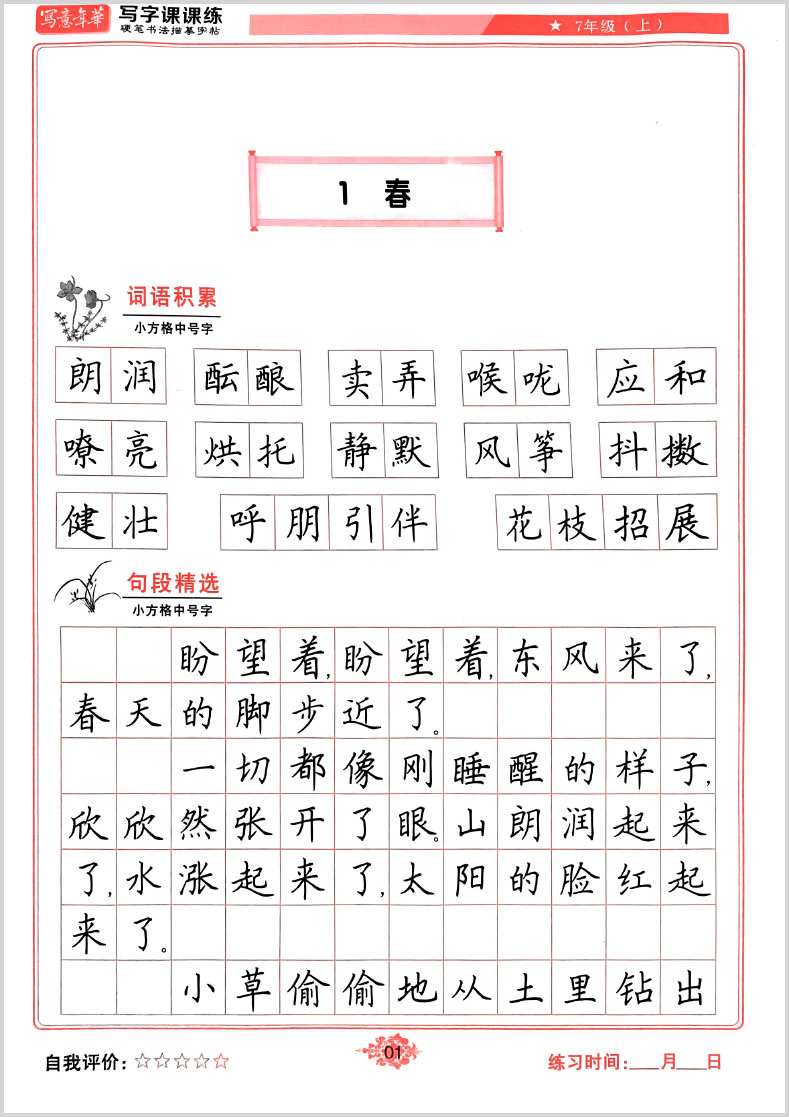 写意年华 写字课课练 ★ 7年级（上）
硬笔书法描摹字帖
1 春
词语积累
小方格中号字
朗润 酝酿 卖弄 喉咙 应和
嘹亮 烘托 静默 风筝 抖擞
健壮 呼朋引伴 花枝招展
句段精选
小方格中号字
盼望着,盼望着,东风来了,
春天的脚步近了。
一切都像刚睡醒的样子,
欣欣然张开了眼。山朗润起来
了,水涨起来了,太阳的脸红起
来了。
小草偷偷地从土里钻出
自我评价:☆☆☆☆☆ 01 练习时间:___月___日